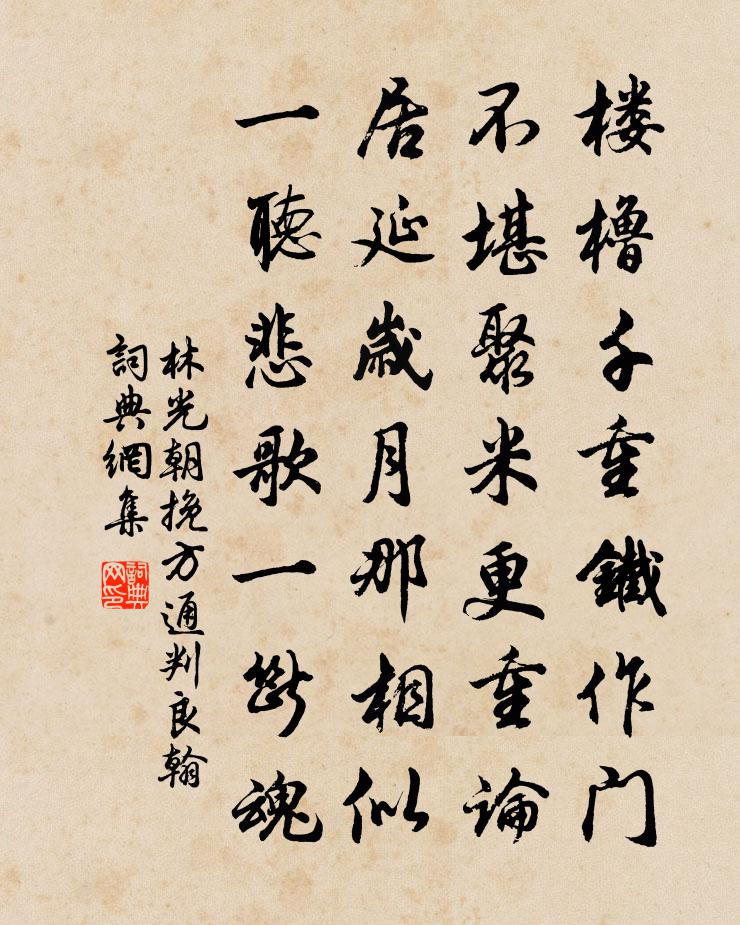 楼櫓千重鐵作门
不堪聚米更重論
居延歲月那相似
一聽悲歌一斷魂
林光朝挽方通判良翰
詞典網集
詞典
网印